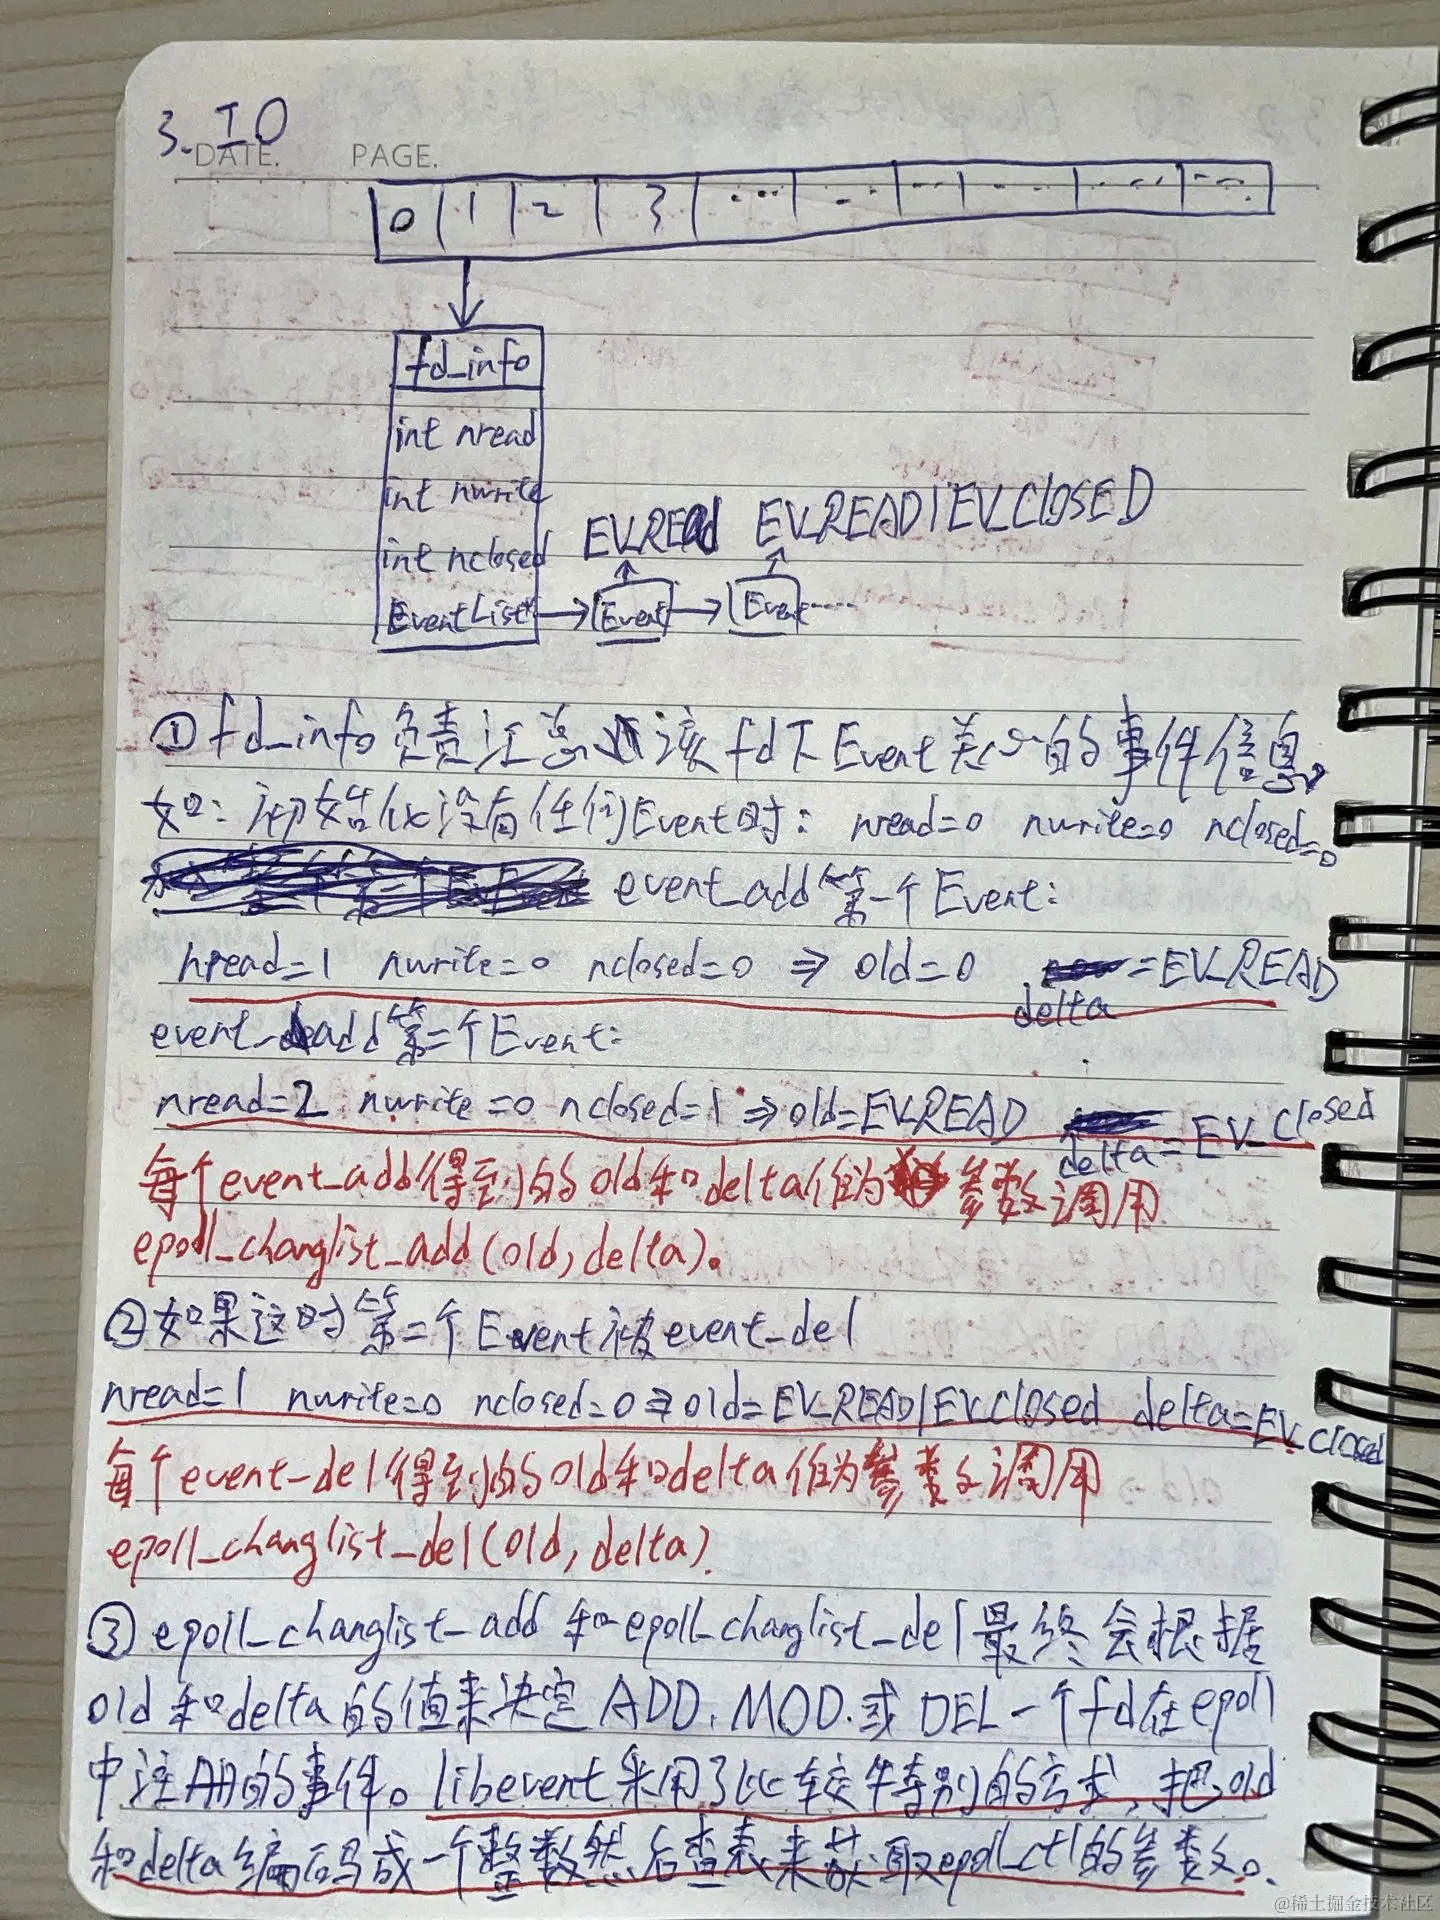 3. IO
DATE. PAGE.
0 1 2 3 ... ... ... ... ... ...
fd_info
int nread
int nwrite
int nclosed
EventList*
EV_READ EV_READ|EV_CLOSED
Event Event ....
①fd_info负责汇总该fd下Event关心的事件信息。
如:初始化没有任何Event时: nread=0 nwrite=0 nclosed=0
event_add第一个Event:
nread=1 nwrite=0 nclosed=0 ⇒ old=0 delta=EV_READ
event_add第二个Event:
nread=2 nwrite=0 nclosed=1 ⇒ old=EV_READ delta=EV_closed
每个event_add得到的old和delta作为参数调用
epoll_changlist_add(old,delta)。
②如果这时第二个Event被event_del
nread=1 nwrite=0 nclosed=0 ⇒ old=EV_READ|EV_closed delta=EV_closed
每个event_del得到的old和delta作为参数调用
epoll_changlist_del(old,delta).
③ epoll_changlist_add 和epoll_changlist_del最终会根据
old和delta的值来决定ADD、MOD、或DEL一个fd在epoll
中注册的事件。libevent采用了比较特别的方式,把old
和delta编码成一个整数然后查表来获取epoll_ctl的参数。
@稀土掘金技术社区